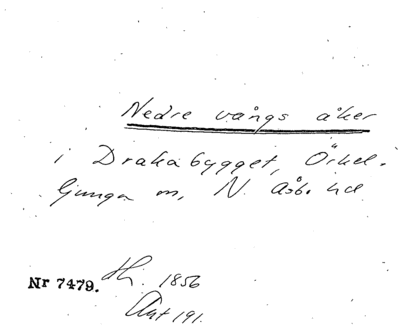 Nedre vångs åker
i Drakabygget, Örkel-
ljunga sn, N. Åsbo hd
Nr 7479. Hi. 1856
Akt 191.